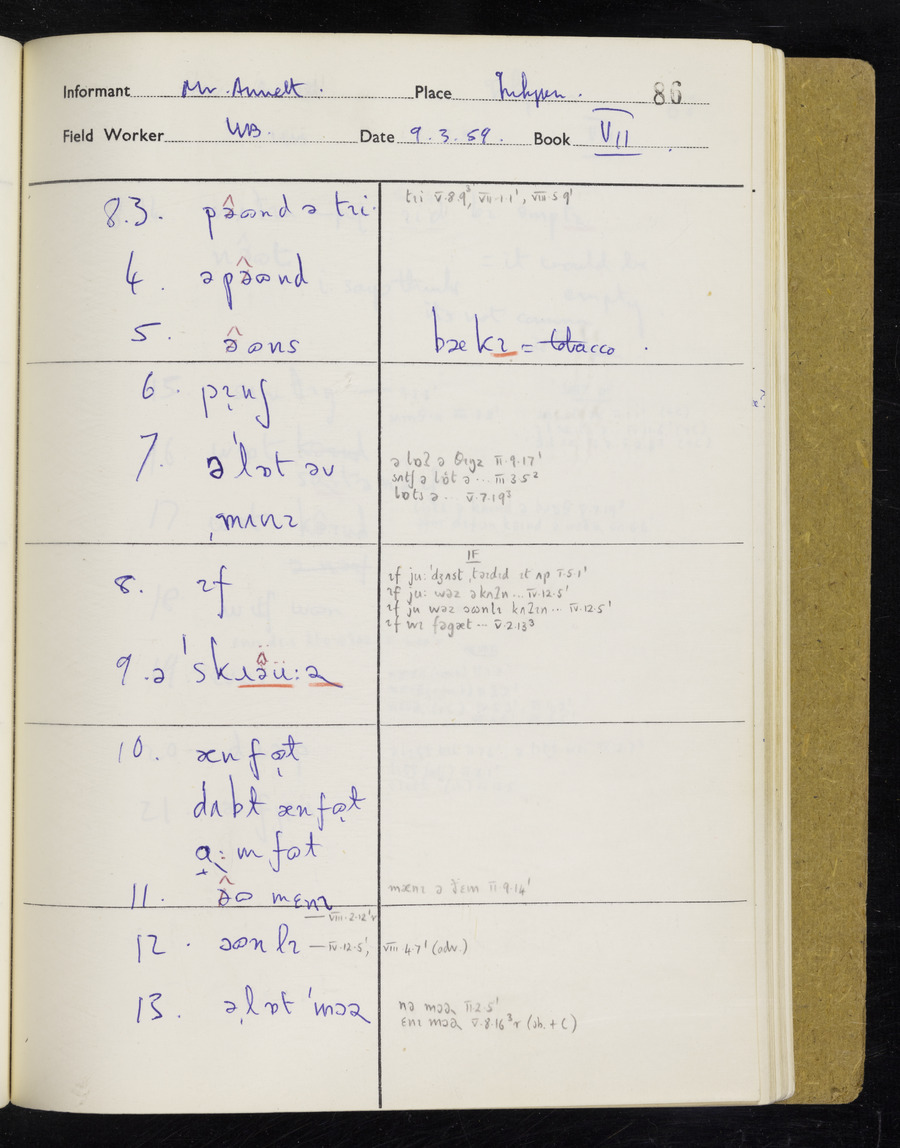 Informant Mr. Annett. Place Inkpen. 86
Field Worker WB. Date 9.3.59. Book VII
8.3. pə̂ɷnd ə tɹi· tɹi V.8.9³, VII.1.1¹, VIII.5.9¹
4. əpə̂ɷnd
5. ə̂ɷns bækɪ = tobacco.
6. pɪ̣nʃ
7. ə'lɒt əv
ˌmʌnɪ
ə lɒʔ ə θɪŋz II.9.17¹
sʌtʃ ə lɒt ə ... III.3.5²
lɒts ə ... V.7.19³
8. ɪf
IF
ɪf ju: 'dʒʌst ˌtəɪdɪd ɪt ʌp I.5.1¹
ɪf ju: wəz əkʌʔn ... IV.12.5¹
ɪf ju wəz əɷnlɪ kʌʔɪn ... IV.12.5¹
ɪf wɪ fəgæt ... V.2.13³
9. ə'skɹə̈ü:ə
10. æn fɷ̣t
dʌbt æn fɷ̣t
ɑ: m fɷt
11. ə̂ɷ mɛnɪ mænɪ ə ðɛm II.9.14¹
— VIII.2.12¹r
12. əɷnlɪ — IV.12.5¹, VIII.4.7¹ (adv.)
13. əˌlɒt 'mɔə
nə mɔə II.2.5¹
ɛnɪ mɔə V.8.16³r (sb. + C)